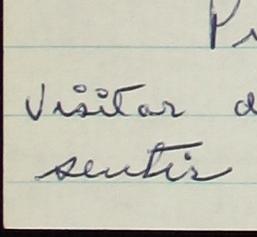 Visitar
sentir